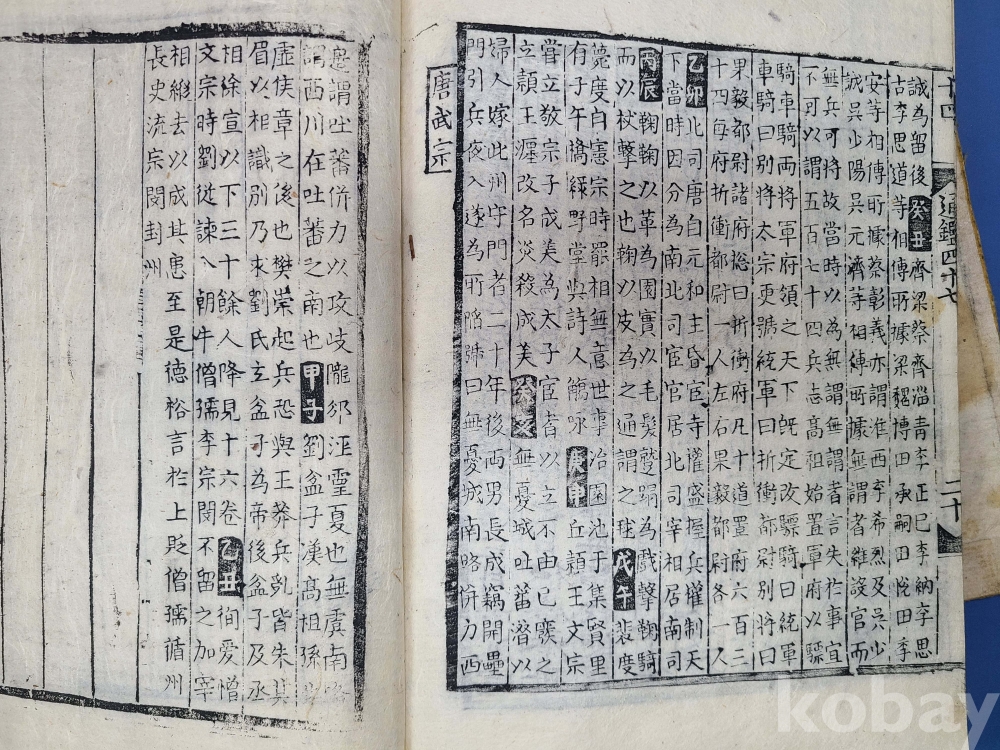 誠為留後癸丑齊梁蔡齊淄青李正巳李納李思
古李思道等相傳所據梁魏博田承嗣田悅田季
安等相傳所據蔡彰義亦謂淮西李希烈及吳少
誠吳少陽吳元濟等相傳所據無謂者維設官而
無兵可將故當時以為無謂無謂者言失於事宜
不可以謂五百七十四兵志高祖始置軍府以驃
騎車騎兩將軍府領之天下旣定改驃騎曰統軍
車騎曰別將太宗更號統軍曰折衝都尉別將曰
果毅都尉諸府捴曰折衝府凡十道置府六百三
十四每府折衝都尉一人左右果毅都尉各一人
乙卯北司唐自元和主昏宦寺權盛握兵權制天
下當時因分為南北司宦官居北司宰相居南司
丙辰鞠鞠以革為圓實以毛髮蹵蹋為戱擊鞠騎
而以杖擊之也鞠以皮為之通謂之毬戊午裴度
䔳度自憲宗時罷相無意世事治園池于集賢里
有子午橋綠野堂與詩人觴咏庚申丘頴王文宗
嘗立敬宗子成美為太子宦者以立不由已廢之
立頴王瀍改名炎殺成美癸亥無憂城吐蕃潛以
婦人嫁此州守門者二十年後兩男長成竊開壘
門引兵夜入遂為所陷號曰無憂城南路倂力西
十四
通鑑四十七
二十
唐武宗
邊謂吐蕃併力以攻岐隴邠涇靈夏也無虞南路
謂西川在吐蕃之南也甲子劉盆子漢高祖孫
虛侯章之後也樊崇起兵恐與王莽兵亂皆朱其
眉以相識別乃求劉氏立盆子為帝後盆子及丞
相徐宣以下三十餘人降見十六卷乙丑徇愛憎
文宗時劉從諫入朝牛僧孺李宗閔不留之加宰
相縱去以成其患至是德裕言於上貶僧孺循州
長史流宗閔封州
kobay